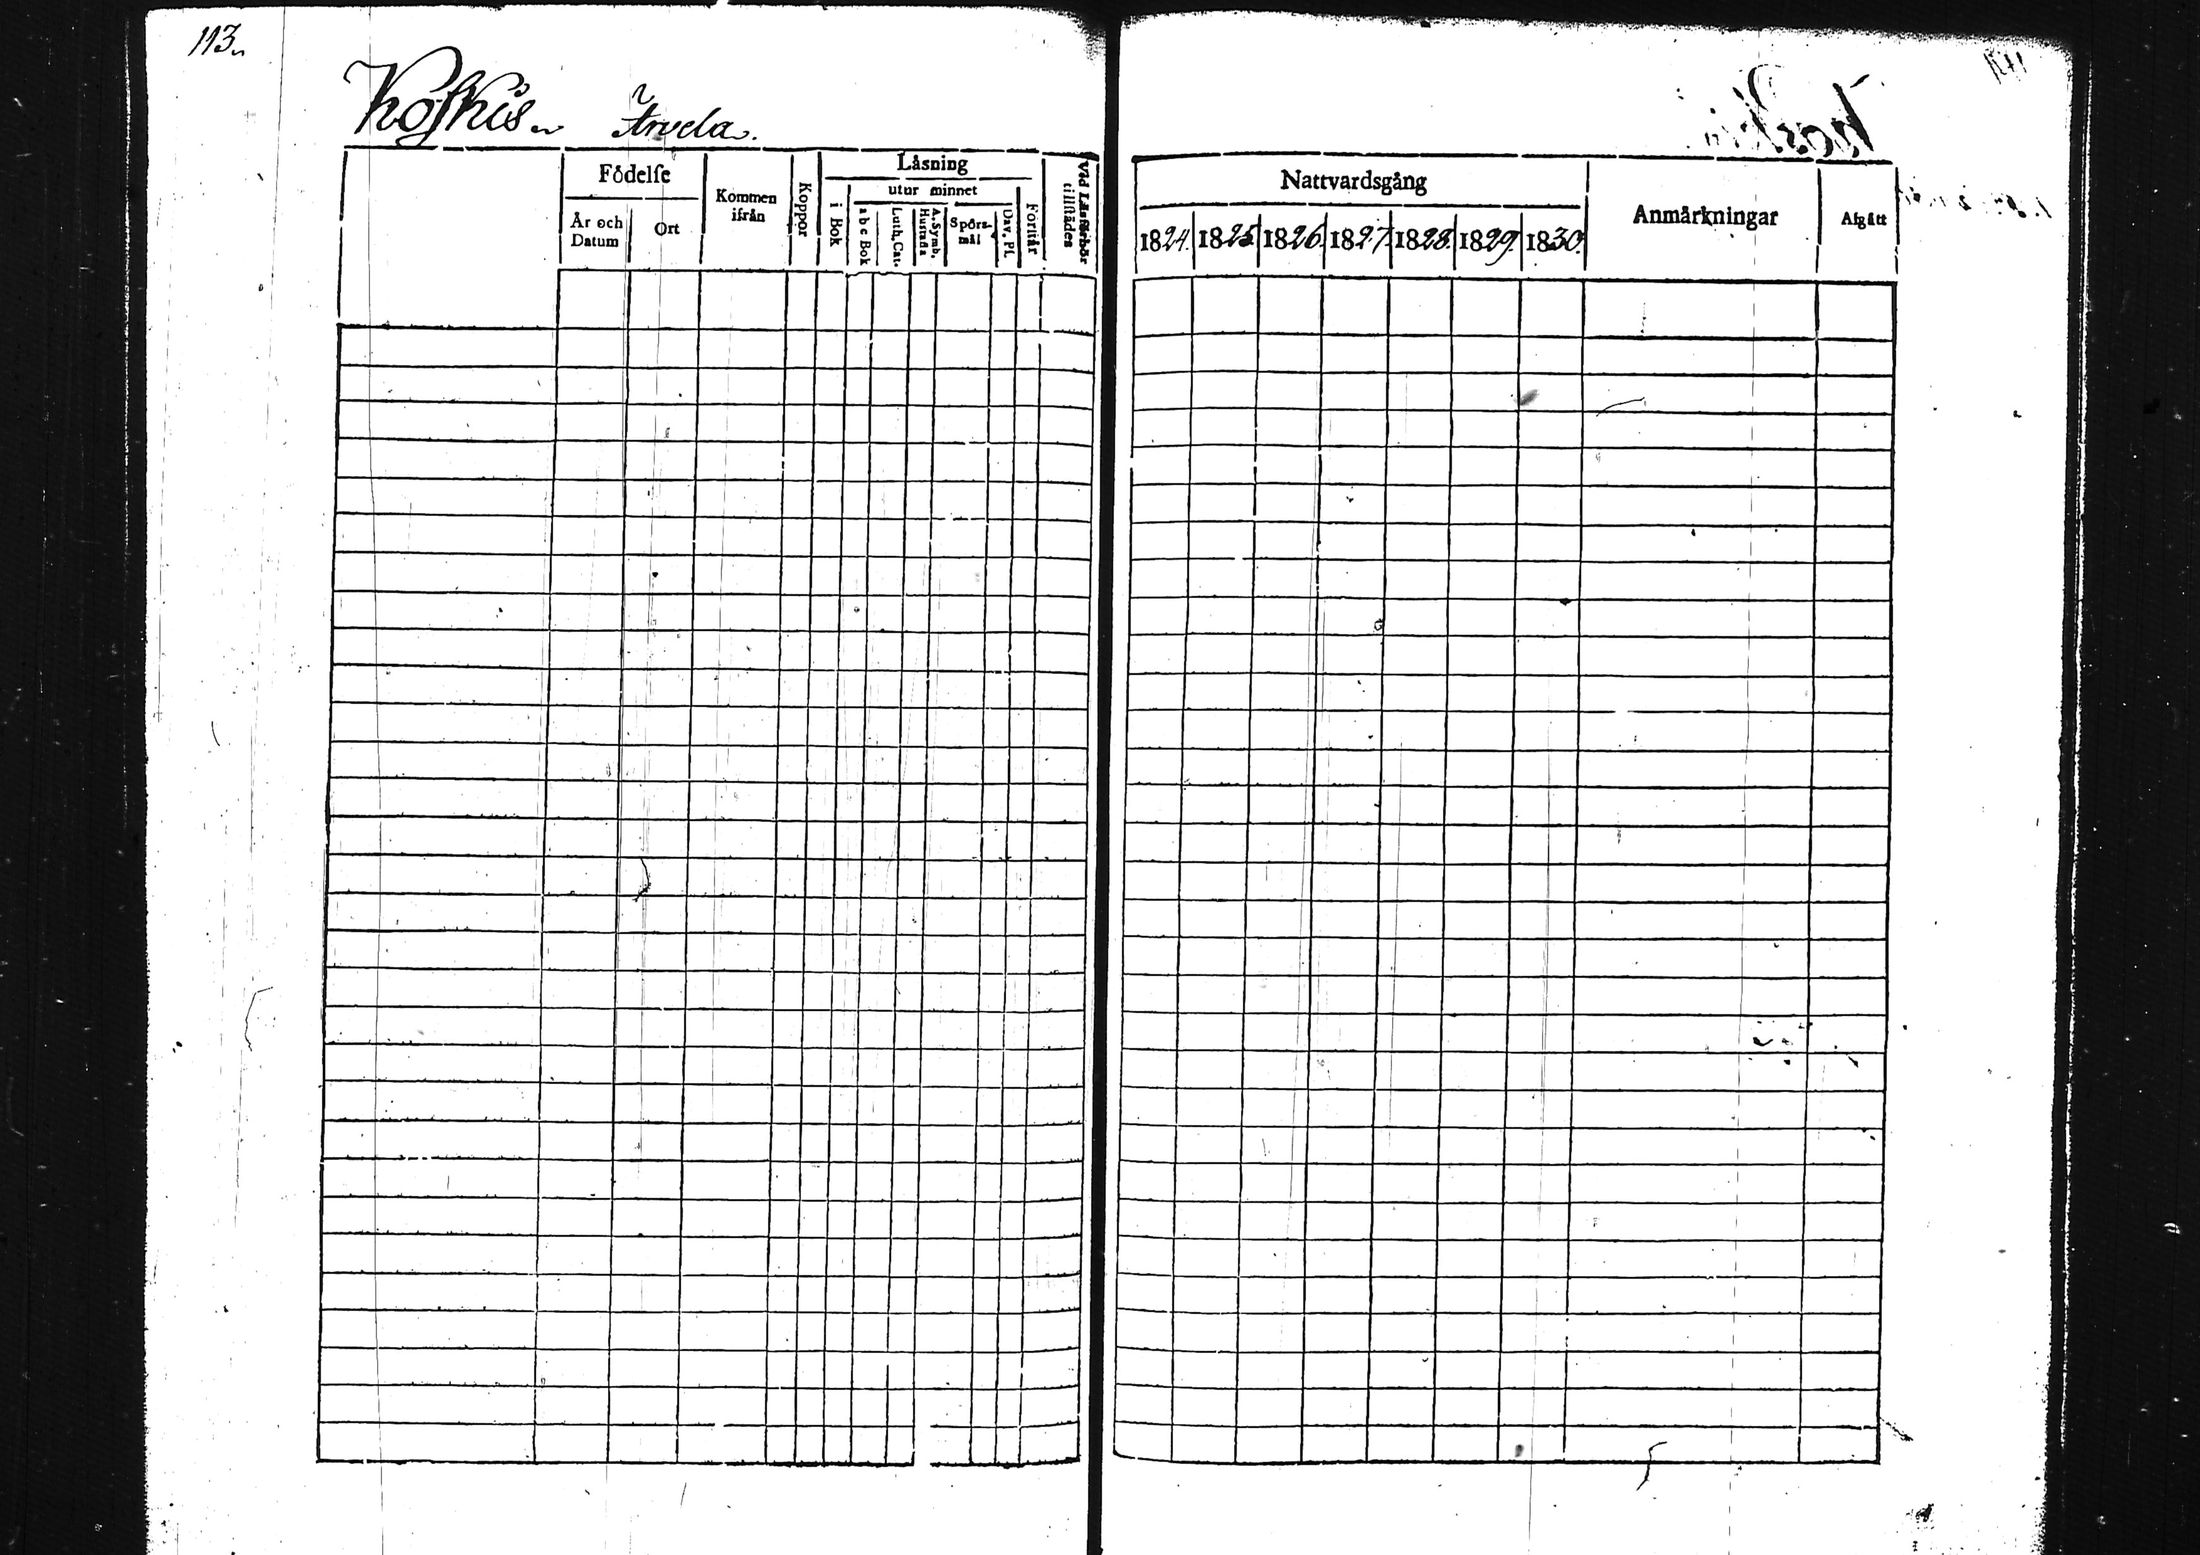 113.
Koskis. Arvela.
Födelse
År och Datum
Ort
Kommen ifrån
Koppor
Läsning
i Bok
utur minnet
a b c Bok
Luth. Cat.
A. Symb. Hustafla
Spörs-mål
Dav. Ps.
Förstår
Vid Läsförhör tillstädes
Nattvardsgång
1824. 1825. 1826. 1827. 1828. 1829. 1830.
Anmärkningar
Afgått